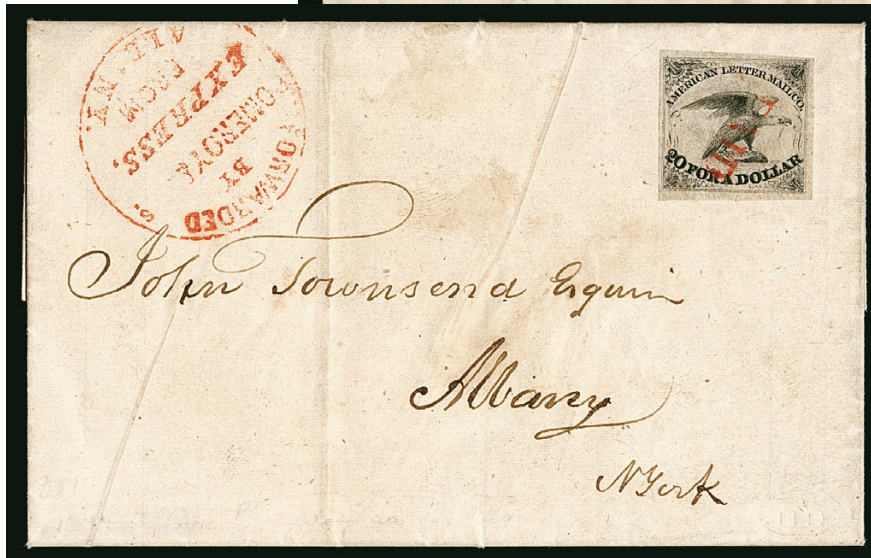 FORWARDED
BY
POMEROYS
EXPRESS.
FROM
ALB. NY.
S.
AMERICAN LETTER MAIL CO.
20 FOR A DOLLAR
John Townsend Esquire
Albany
N York